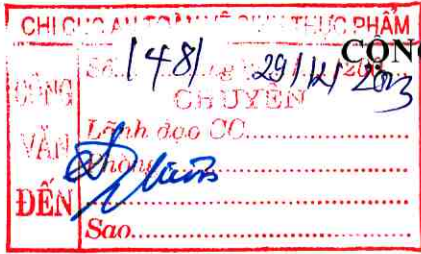 CHI CỤC AN TOÀN VỆ SINH THỰC PHẨM
CỘNG
CÔNG VĂN ĐẾN
Số 1481 29/12/2023
CHUYỂN
Lãnh đạo CC
Phòng
Sao